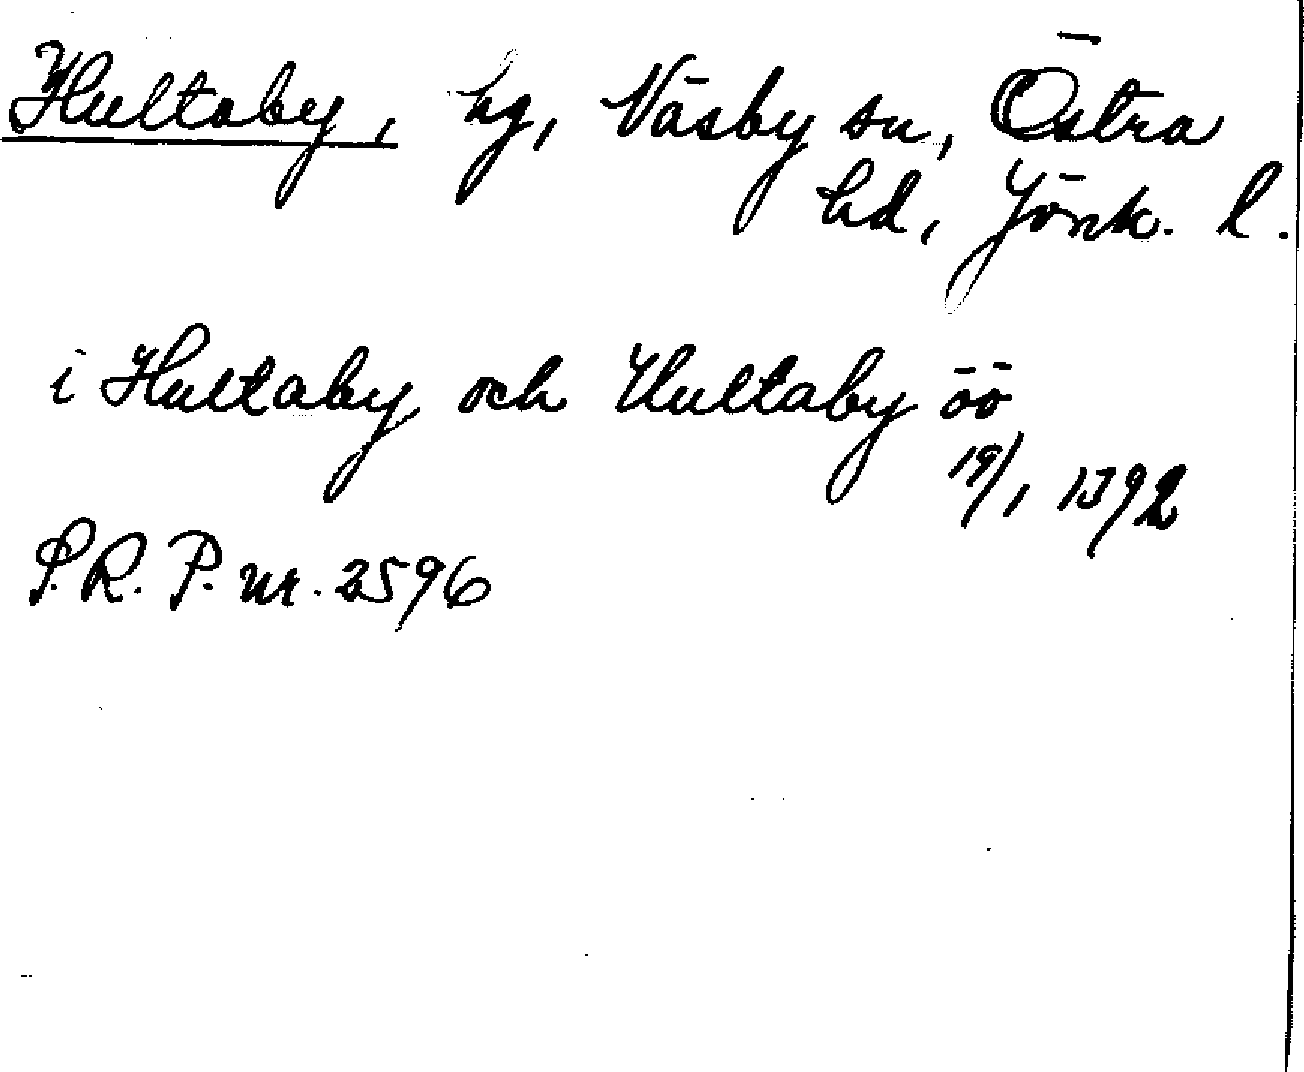 Hultaby, hg, Näsby sn, Östra
hd, Jönk. l.
i Hultaby och Hultaby öö
19/1 1392
S.R.P. nr. 2596